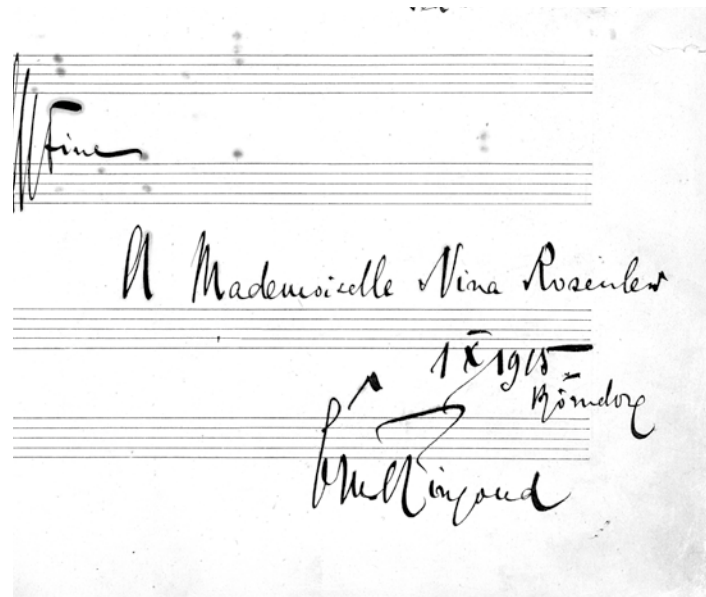 Fine
A Mademoiselle Nina Rosenlew
1 X 1915
Pingoud